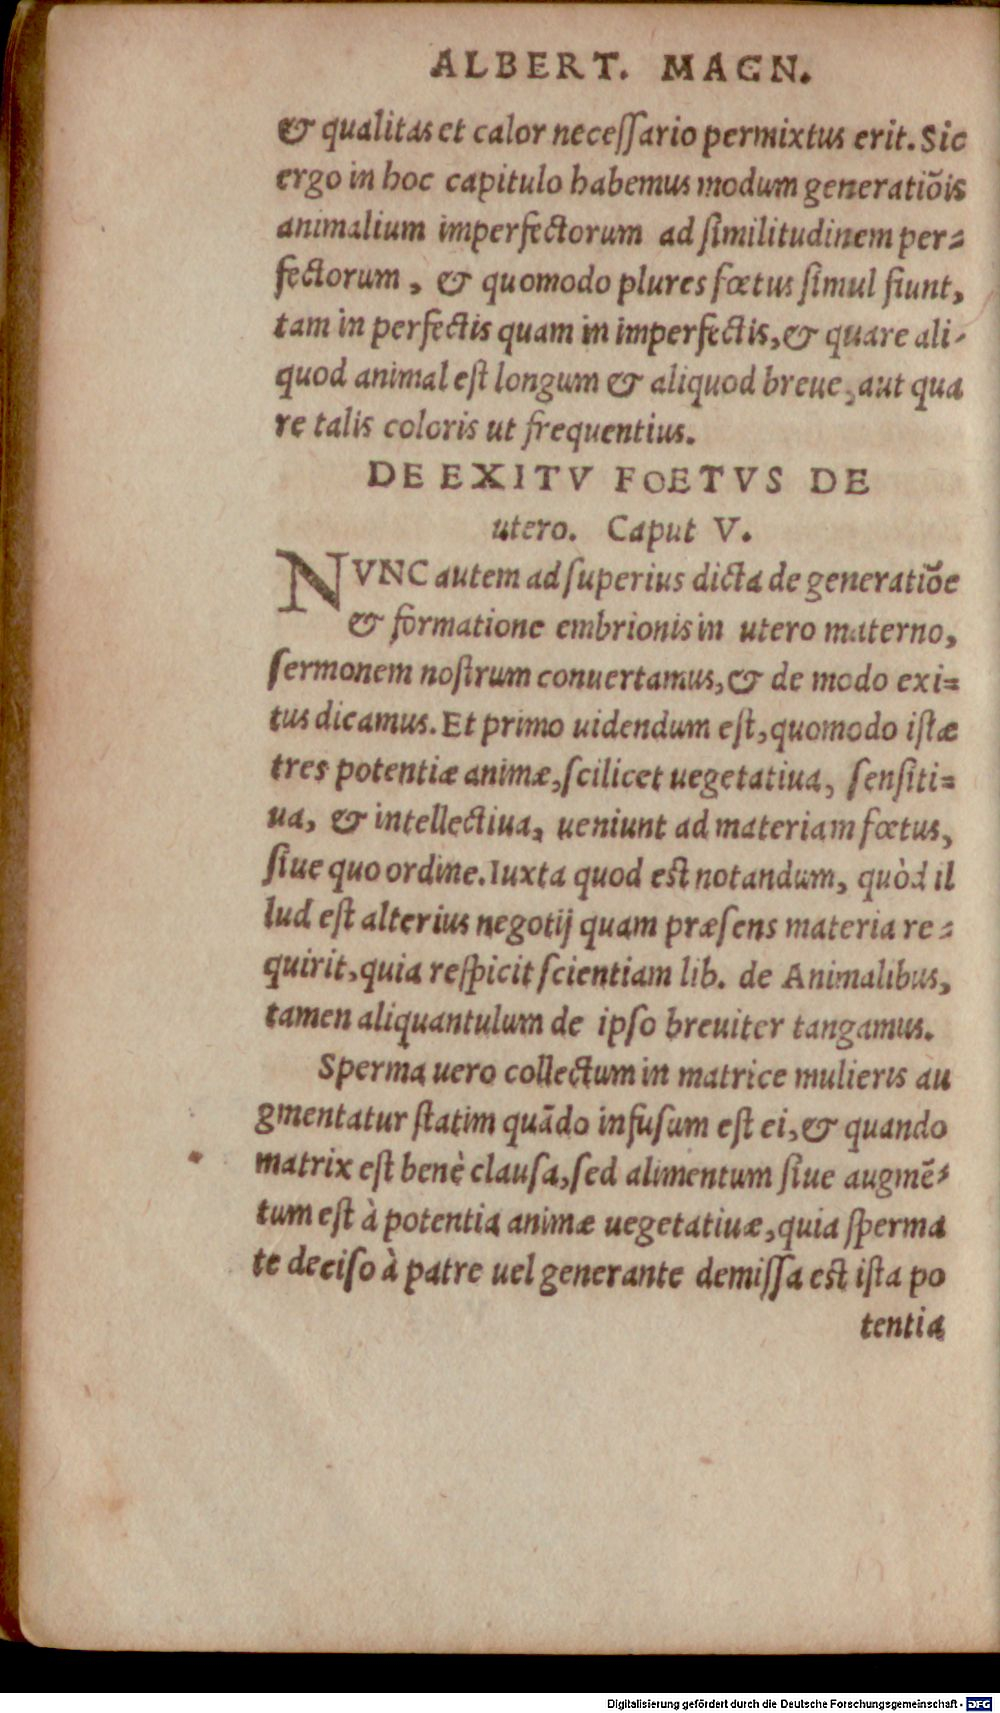 ALBERT. MAGN.
& qualitas et calor necessario permixtus erit. Sic
ergo in hoc capitulo habemus modum generatiōis
animalium imperfectorum ad similitudinem per=
fectorum, & quomodo plures fœtus simul fiunt,
tam in perfectis quam in imperfectis, & quare ali-
quod animal est longum & aliquod breue, aut qua
re talis coloris ut frequentius.
DE EXITV FOETVS DE
utero. Caput V.
NVNC autem ad superius dicta de generatiōe
& formatione embrionis in utero materno,
sermonem nostrum conuertamus, & de modo exi=
tus dicamus. Et primo uidendum est, quomodo istæ
tres potentiæ animæ, scilicet uegetatiua, sensiti=
ua, & intellectiua, ueniunt ad materiam fœtus,
siue quo ordine. Iuxta quod est notandum, quòd il
lud est alterius negotij quam præsens materia re=
quirit, quia respicit scientiam lib. de Animalibus,
tamen aliquantulum de ipso breuiter tangamus.
Sperma uero collectum in matrice mulieris au
gmentatur statim quādo infusum est ei, & quando
matrix est benè clausa, sed alimentum siue augmē-
tum est à potentia animæ uegetatiuæ, quia sperma
te deciso à patre uel generante demissa est ista po
tentia
Digitalisierung gefördert durch die Deutsche Forschungsgemeinschaft - DFG